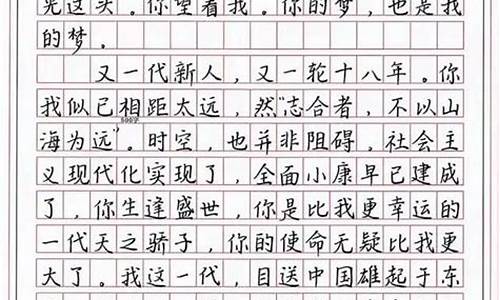 光这头。你望着我。你的梦，也是我
的梦。
又一代新人，又一轮十八年。你
我似已相距太远，然“志合者，不以山
500字
海为远”。时空，也并非阻碍，社会主
义现代化实现了，全面小康早已建成
了，你生逢盛世，你是比我更幸运的
一代天之骄子，你的使命无疑比我更
大了。我这一代，目送中国雄起于东